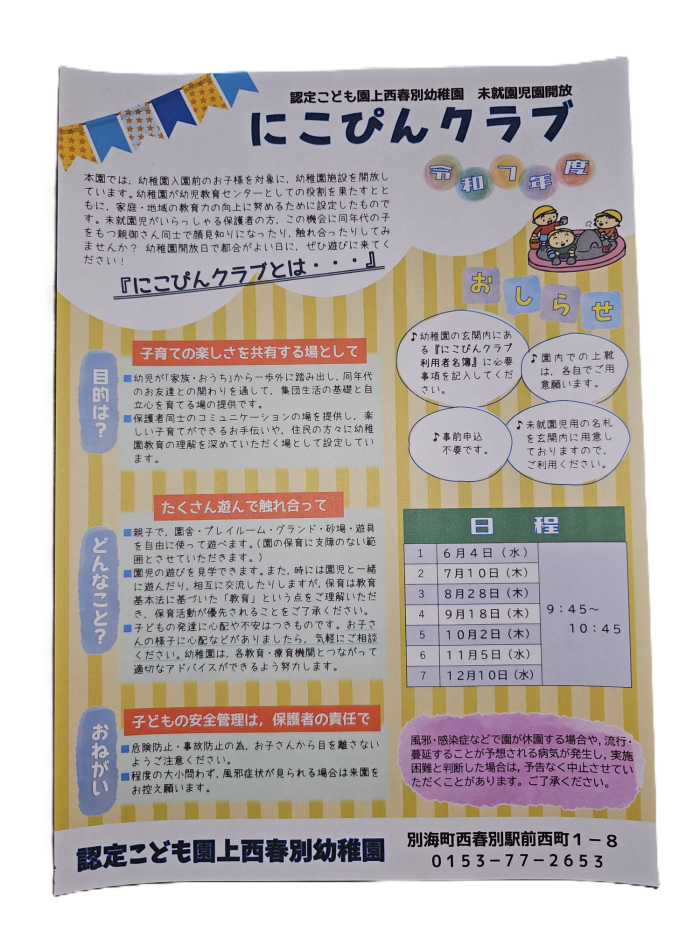 認定こども園上西春別幼稚園　未就園児園開放
にこぴんクラブ
令和7年度
本園では，幼稚園入園前のお子様を対象に，幼稚園施設を開放し
ています。幼稚園が幼児教育センターとしての役割を果たすとと
もに，家庭・地域の教育力の向上に努めるために設定したもので
す。未就園児がいらっしゃる保護者の方，この機会に同年代の子
をもつ親御さん同士で顔見知りになったり，触れ合ったりしてみ
ませんか？ 幼稚園開放日で都合がよい日に，ぜひ遊びに来てく
ださい！
『にこぴんクラブとは・・・』
目的は？
子育ての楽しさを共有する場として
■幼児が「家族・おうち」から一歩外に踏み出し，同年代
のお友達との関わりを通して，集団生活の基礎と自
立心を育てる場の提供です。
■保護者同士のコミュニケーションの場を提供し，楽
しい子育てができるお手伝いや，住民の方々に幼稚
園教育の理解を深めていただく場として設定してい
ます。
どんなこと？
たくさん遊んで触れ合って
■親子で，園舎・プレイルーム・グランド・砂場・遊具
を自由に使って遊べます。（園の保育に支障のない範
囲とさせていただきます。）
■園児の遊びを見学できます。また，時には園児と一緒
に遊んだり，相互に交流したりしますが，保育は教育
基本法に基づいた「教育」という点をご理解いただ
き，保育活動が優先されることをご了承ください。
■子どもの発達に心配や不安はつきものです。お子さ
んの様子に心配などがありましたら，気軽にご相談
ください。幼稚園は，各教育・療育機関とつながって
適切なアドバイスができるよう努力します。
おねがい
子どもの安全管理は，保護者の責任で
■危険防止・事故防止の為，お子さんから目を離さない
ようご注意ください。
■程度の大小問わず，風邪症状が見られる場合は来園を
お控え願います。
おしらせ
♪幼稚園の玄関内にあ
る『にこぴんクラブ
利用者名簿』に必要
事項を記入してくだ
さい。
♪園内での上靴
は，各自でご用
意願います。
♪事前申込
不要です。
♪未就園児用の名札
を玄関内に用意し
ておりますので，
ご利用ください。
日　程
1　6月4日（水）
2　7月10日（木）
3　8月28日（木）
4　9月18日（木）
5　10月2日（木）
6　11月5日（水）
7　12月10日（水）
9：45～
10：45
風邪・感染症などで園が休園する場合や，流行・
蔓延することが予想される病気が発生し，実施
困難と判断した場合は，予告なく中止させてい
ただくことがあります。ご了承ください。
認定こども園上西春別幼稚園
別海町西春別駅前西町1－8
0153－77－2653